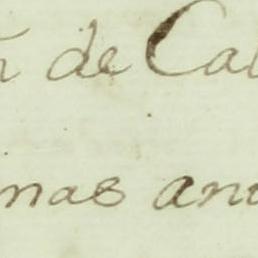 de Cal
nas ani